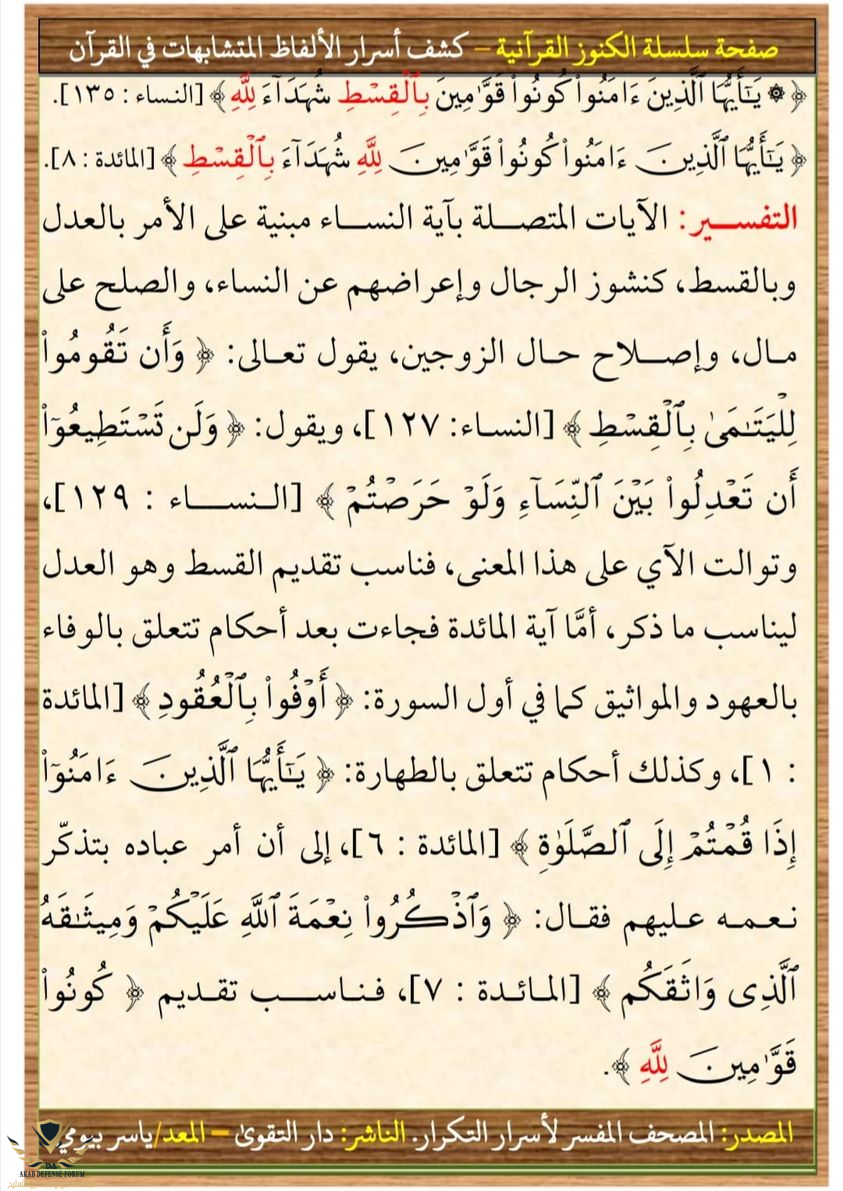 صفحة سلسلة الكنوز القرآنية – كشف أسرار الألفاظ المتشابهات في القرآن
﴿ ۞ يَٰٓأَيُّهَا ٱلَّذِينَ ءَامَنُواْ كُونُواْ قَوَّٰمِينَ بِٱلۡقِسۡطِ شُهَدَآءَ لِلَّهِ ﴾ [النساء : ١٣٥].
﴿ يَٰٓأَيُّهَا ٱلَّذِينَ ءَامَنُواْ كُونُواْ قَوَّٰمِينَ لِلَّهِ شُهَدَآءَ بِٱلۡقِسۡطِ ﴾ [المائدة : ٨].
التفسير: الآيات المتصلة بآية النساء مبنية على الأمر بالعدل
وبالقسط، كنشوز الرجال وإعراضهم عن النساء، والصلح على
مال، وإصلاح حال الزوجين، يقول تعالى: ﴿ وَأَن تَقُومُواْ
لِلۡيَتَٰمَىٰ بِٱلۡقِسۡطِ ﴾ [النساء: ١٢٧]، ويقول: ﴿ وَلَن تَسۡتَطِيعُوٓاْ
أَن تَعۡدِلُواْ بَيۡنَ ٱلنِّسَآءِ وَلَوۡ حَرَصۡتُمۡ ﴾ [النساء : ١٢٩]،
وتوالت الآي على هذا المعنى، فناسب تقديم القسط وهو العدل
ليناسب ما ذكر، أمَّا آية المائدة فجاءت بعد أحكام تتعلق بالوفاء
بالعهود والمواثيق كما في أول السورة: ﴿ أَوۡفُواْ بِٱلۡعُقُودِ ﴾ [المائدة
: ١]، وكذلك أحكام تتعلق بالطهارة: ﴿ يَٰٓأَيُّهَا ٱلَّذِينَ ءَامَنُوٓاْ
إِذَا قُمۡتُمۡ إِلَى ٱلصَّلَوٰةِ ﴾ [المائدة : ٦]، إلى أن أمر عباده بتذكّر
نعمه عليهم فقال: ﴿ وَٱذۡكُرُواْ نِعۡمَةَ ٱللَّهِ عَلَيۡكُمۡ وَمِيثَٰقَهُ
ٱلَّذِى وَاثَقَكُم ﴾ [المائدة : ٧]، فناسب تقديم ﴿ كُونُواْ
قَوَّٰمِينَ لِلَّهِ ﴾.
المصدر: المصحف المفسر لأسرار التكرار. الناشر: دار التقوىٰ – المعد/ياسر بيومي
DA
ARAB DEFENSE FORUM